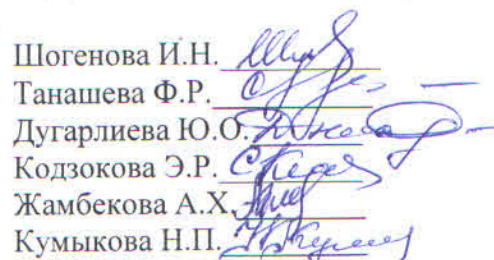 Шогенова И.Н.
Танашева Ф.Р.
Дугарлиева Ю.О.
Кодзокова Э.Р.
Жамбекова А.Х.
Кумыкова Н.П.